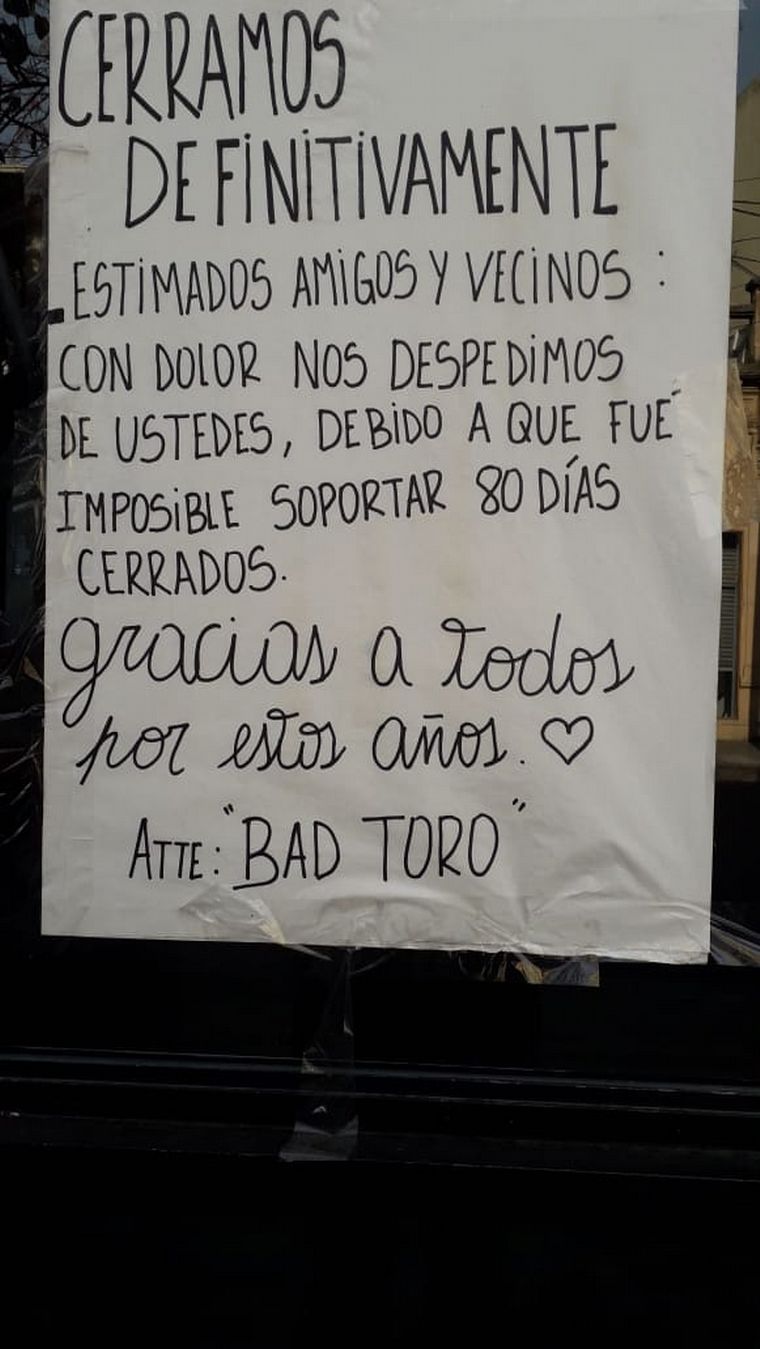 CERRAMOS
DEFINITIVAMENTE
ESTIMADOS AMIGOS Y VECINOS :
CON DOLOR NOS DESPEDIMOS
DE USTEDES, DEBIDO A QUE FUÉ
IMPOSIBLE SOPORTAR 80 DÍAS
CERRADOS.
gracias a todos
por estos años. ♡
ATTE: "BAD TORO"